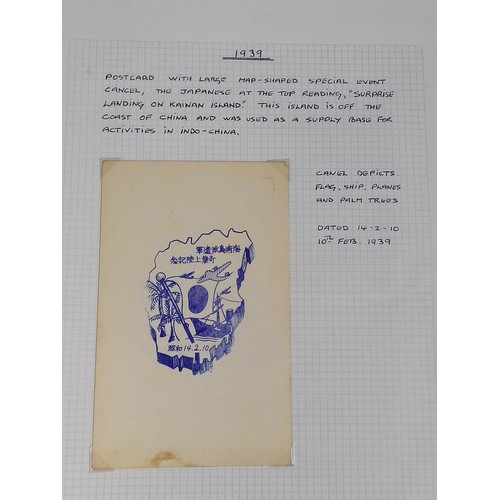 1939
POSTCARD WITH LARGE MAP-SHAPED SPECIAL EVENT
CANCEL, THE JAPANESE AT THE TOP READING, "SURPRISE
LANDING ON KAINAN ISLAND." THIS ISLAND IS OFF THE
COAST OF CHINA AND WAS USED AS A SUPPLY BASE FOR
ACTIVITIES IN INDO-CHINA.
CANEL DEPICTS
FLAG, SHIP, PLANES
AND PALM TREES
DATED 14-2-10
10TH FEB. 1939
軍遣派島南海
念記陸上襲奇
昭和14.2.10